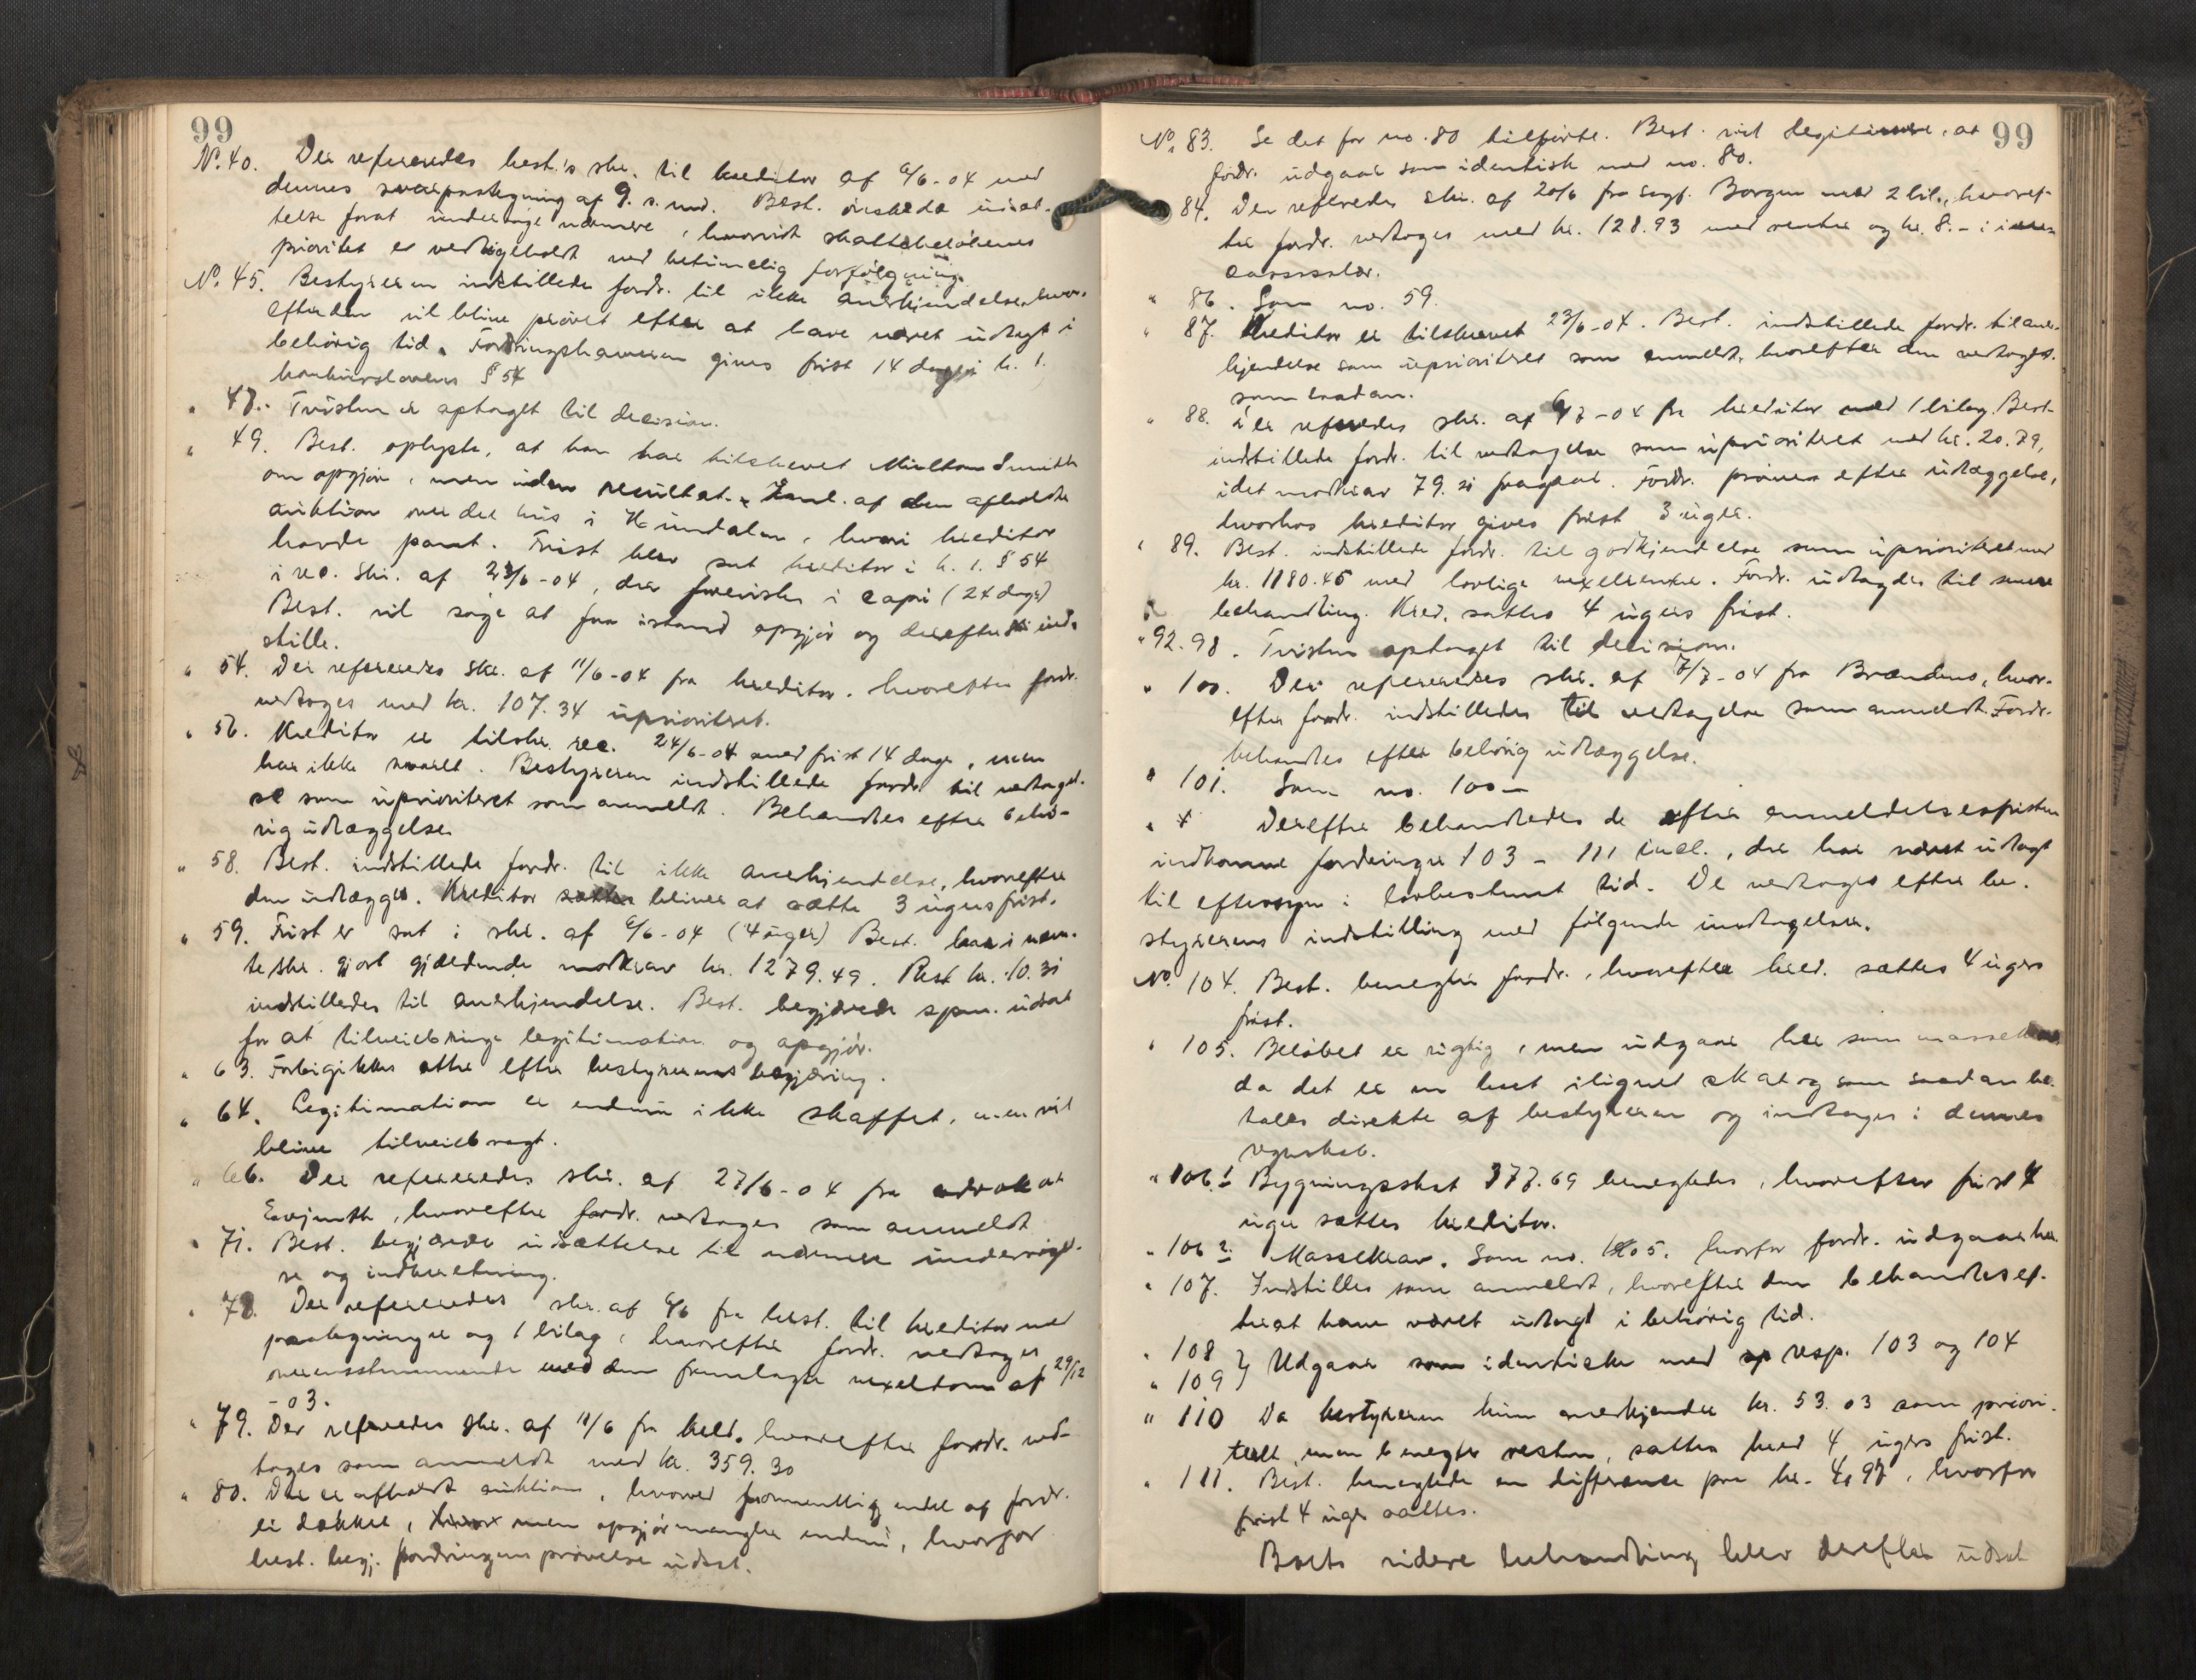 99
No. 40. Der refereredes best.'s skr. til kreditor af 6/6-04 med
dennes svarpaategning af 9. s. md. Best. ønskede udsæt-
telse forat undersøge nærmere, hvorvidt skattebeløbenes
prioritet er vedligeholdt ved betimelig forfølgning.
No. 45. Bestyreren indstillede fordr. til ikke anerkjendelse, hvor-
efter den vil blive prøvet efter at have været udlagt i
behørig tid. Fordringshaveren gives frist 14 dage i h. t.
konkurslovens § 54
" 48. Tvisten er optaget til decision.
" 49. Best. oplyste, at han har tilskrevet Milthon Smith
om opgjør, men uden resultat. af den afholdte
auktion over det hus i Hundalen, hvori kreditor
havde pant. Frist blev sat kreditor i h. t. § 54
i rec. skr. af 23/6-04, der forevistes i copi (24 dage)
Best. vil søge at faa istand opgjør og derefter ind-
stille.
" 54. Der refereredes skr. af 11/6-04 fra kreditor, hvorefter fordr.
vedtoges med kr. 107.34 uprioriteret.
" 56. Kreditor er tilskr. rec. 24/6-04 med frist 14 dage, men
har ikke svaret. Bestyreren indstillede fordr. til vedtagel-
se som uprioriteret som anmeldt. Behandles efter behø-
rig udlæggelse.
" 58. Best. indstillede fordr. til ikke anerkjendelse, hvorefter
den udlægges. Kreditor sættes bliver at sætte 3 ugers frist.
" 59. Frist er sat i skr. af 6/6-04 (4 uger) Best. har i nævn-
te skr. gjort gjældende modkrav kr. 1279.49. Rest kr. 10.31
indstilledes til anerkjendelse. Best. begjærede spm. udsat
for at tilveiebringe legitimation og opgjør.
" 63. Forbigikkes atter efter bestyrerens begjæring.
" 64. Legitimation er endnu ikke skaffet, men vil
blive tilveiebragt.
" 66. Der refereredes skr. af 27/6-04 fra advokat
Evjenth, hvorefter fordr. vedtoges som anmeldt
" 71. Best. begjærede udsættelse til nærmere undersøgel-
se og indberetning.
" 78. Der refereredes skr. af 6/6 fra best. til kreditor med
paategninger og 1 bilag, hvorefter fordr. vedtoges
overensstemmende med den fremlagte vexeldom af 29/12
-03.
" 79. Der refereredes skr. af 11/6 fra kred. hvorefter fordr. ved-
toges som anmeldt med kr. 359.30
" 80. Der er afholdt auktion, hvorved formentlig endel af fordr.
er dækket, men opgjør mangler endnu, hvorfor
best. begj. fordringens prøvelse udsat.
99
No. 83. Se det for no. 80 tilførte. Best. vil legitimere, at
fordr. udgaar som identisk med no. 80.
" 84. Der refereredes skr. af 20/6 fra sagf. Borgen med 2 bil., hvoref-
ter fordr. vedtoges med kr. 128.93 med renter og kr. 8.- i in-
cassosalær.
" 86. Som no. 59.
" 87. Kreditor er tilskrevet 23/6-04. Best. indstillede fordr. til aner-
kjendelse som uprioriteret som anmeldt, hvorefter den vedtoges
som saadan.
" 88. Der refereredes skr. af 9/7-04 fra kreditor med 1 bilag. Best.
indstillede fordr. til vedtagelse som uprioriteret med kr. 20.79,
idet modkrav 79.21 fragaar. Fordr. prøves efter udlæggelse,
hvorhos kreditor gives frist 3 uger.
" 89. Best. indstillede fordr. til godkjendelse som uprioriteret med
kr. 1180.45 med lovlige vexelrenter. Fordr. udlagdes til senere
behandling. Kred. sattes 4 ugers frist.
" 92. 98. Tvisten optaget til decision.
" 100. Der refereredes skr. af 7/7-04 fra Brændmo, hvor-
efter fordr. indstilledes til vedtagelse som anmeldt. Fordr.
behandles efter behørig udlæggelse.
" 101. Som no. 100
" Derefter behandledes de efter anmeldelsesfristen
indkomne fordringer 103 - 111 incl., der har været udlagt
til eftersyn i lovbestemt tid. De vedtoges efter be-
styrerens indstilling med følgende undtagelser.
No. 104. Best. benegter fordr., hvorefter kred. sættes 4 ugers
frist.
" 105. Beløbet er rigtig, men udgaar her som massekrav
da det er en lest ilignet skat og som saadan be-
tales direkte af bestyreren og indtages i dennes
regnskab.
" 106.1 Bygningsskat 377.69 benegtedes, hvorefter frist 4
uger sættes kreditor.
" 106 2. Massekrav. Som no. 105. hvorfor fordr. udgaar her.
" 107. Indstilles som anmeldt, hvorefter den behandles ef-
ter at have været udlagt i behørig tid.
" 108
" 109 } Udgaar som identiske med resp. 103 og 104
" 110 Da bestyreren kun anerkjender kr. 53.03 som priori-
tert, men benegter resten, sættes kred 4 ugers frist.
" 111. Best. benegtede en difference paa kr. 4,97, hvorfor
frist 4 uger sættes.
Boets videre behandling blev derefter udsat